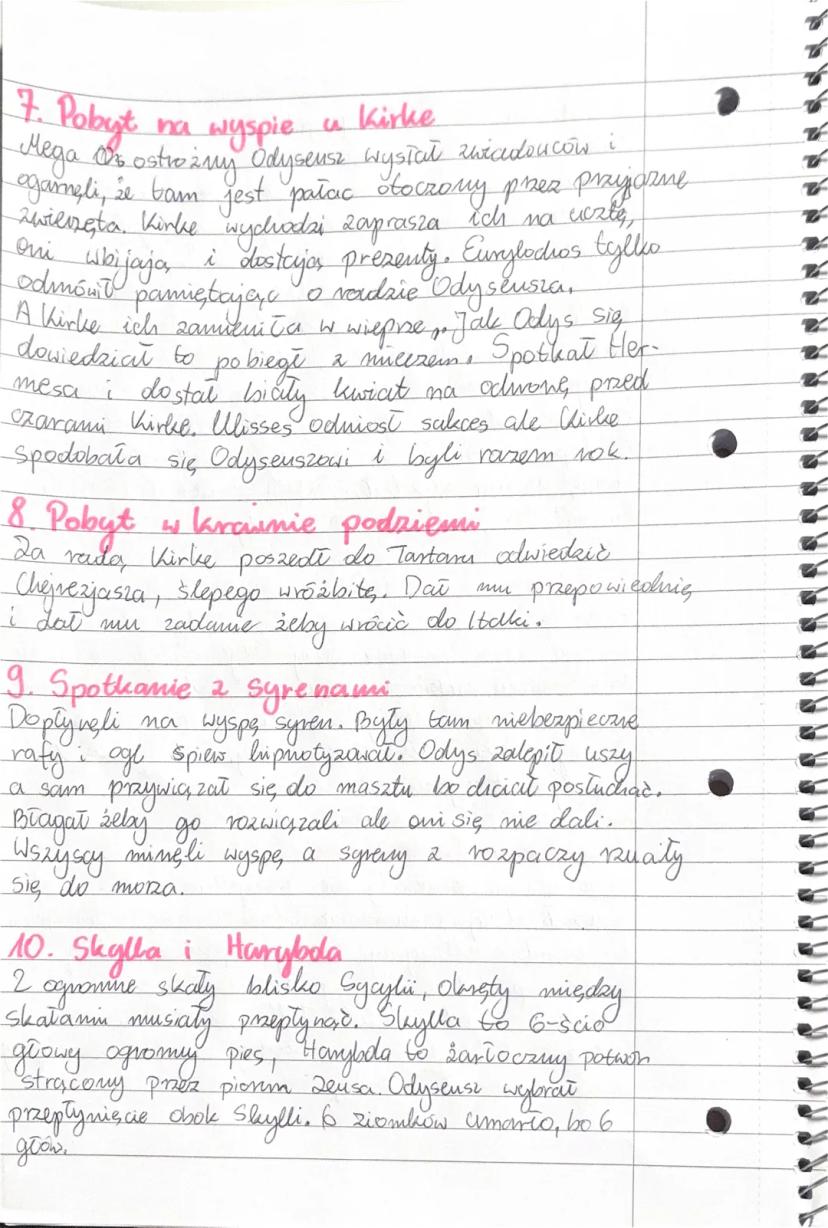 7. Pobyt na wyspie u Kirke
Mega ostrożny Odyseusz wysłał zwiadowców i
ogarnęli, że tam jest pałac otoczony przez przyjazne
zwierzęta. Kirke wychodzi zaprasza ich na ucztę,
oni wbijają i dostają prezenty. Eurylochos tylko
odmówił pamiętając o radzie Odyseusza.
A Kirke ich zamieniła w wieprze. Jak Odys się
dowiedział to pobiegł z mieczem. Spotkał Her-
mesa i dostał biały kwiat na odwronę przed
czarami Kirke. Ulisses odniosł sukces ale Kirke
spodobała się Odyseuszowi i byli razem rok.
8. Pobyt w krainie podziemi
Za radą Kirke poszedł do Tartaru odwiedzić
Chejrezjasza, ślepego wróżbitę. Dał mu przepowiednię
i dał mu zadanie żeby wrócić do Itaki.
9. Spotkanie z syrenami
Dopłynęli na wyspę syren. Były tam niebezpieczne
rafy i ogl śpiew hipnotyzował. Odys zalepił uszy
a sam przywiązał się do masztu bo chciał posłuchać.
Błagał żeby go rozwiązali ale oni się nie dali.
Wszyscy minęli wyspę a syreny z rozpaczy rzuały
się do morza.
10. Skylla i Harybda
2 ogromne skały blisko Sycylii, Okręty między
skałami musiały przepłynąć. Skylla to 6-ścio
głowy ogromny pies, Harybda to żarłoczny potwór
strącony przez piorun Zeusa. Odyseusz wybrał
przepłynięcie obok Skylli. 6 ziomków umarło, bo 6
głów.